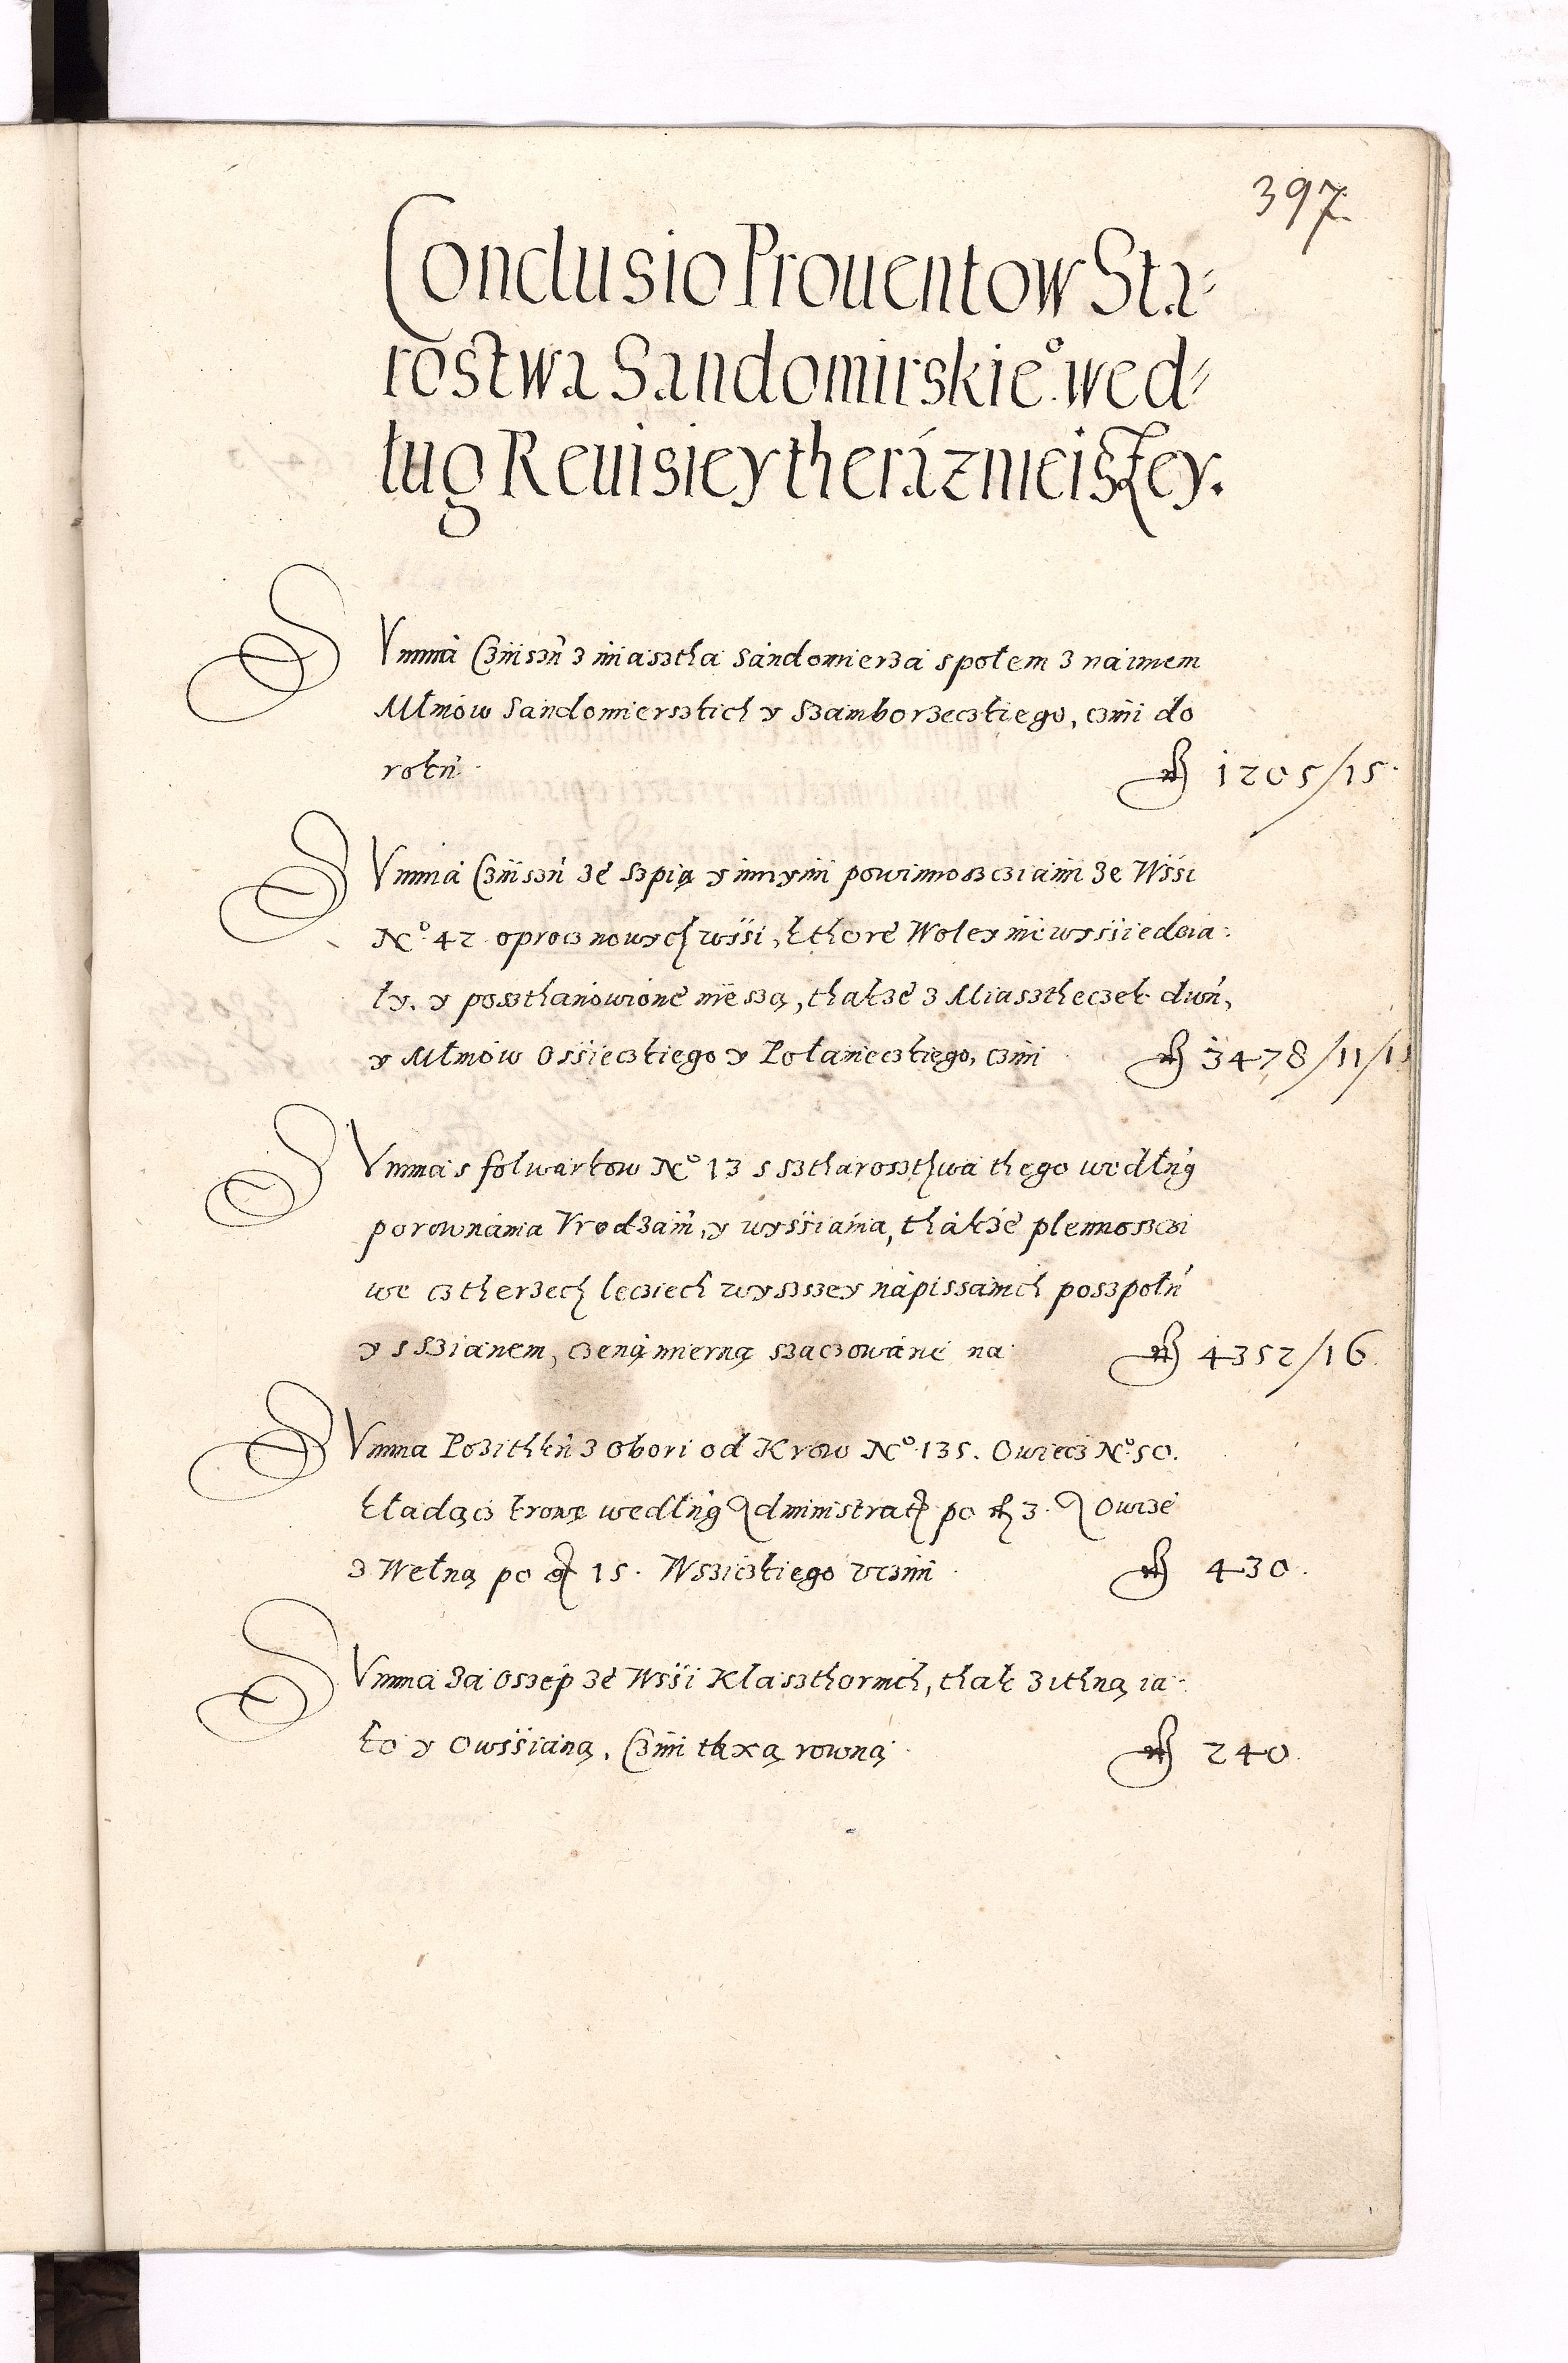 397
Conclusio Prouentow Sta-
rostwa Sandomirskie° wed-
ług Reuisiey theráznieiszey.
Summá Czinszu z miasztha Sándomierzá społem z náimem
Młinów Sandomierszkich y Szamborzeczkiego, czini do
roku fl 1205/15
Summá Czinszu zé szpią y innymi powinnoszcziámi ze Wssi
N° 42 oprocz nowych wssi, kthoré Woley nie wyssiedzia-
ły, y poszthanowioné nie są, thakzé z Miasztheczek dwu,
y Młinów Ossieczkiego y Połanieczkiego, czini fl 3478/11/
Summa s folwarkow N° 13 s sztharoszthwa thego według
porownania Vrodzáiu, y wyssiánia, thákzé plennoszczi
we cztherzech leciech wyszszey nápissanich poszpołu
y s Szianem, czeną mierną szaczowáné na fl 4352/16
Summa Pozithku z obori od Krow N° 135. Owiecz N° 50.
kładącz krowę według Administrat po fl 3. A Owczé
z Wełną po gr 15. Wszičzkiego vczini fl 430.
Summa za oszép zé Wssi Klaszthornich, thak zithną ia-
ko y Owssianą. Czini thaxą rowną fl 240.